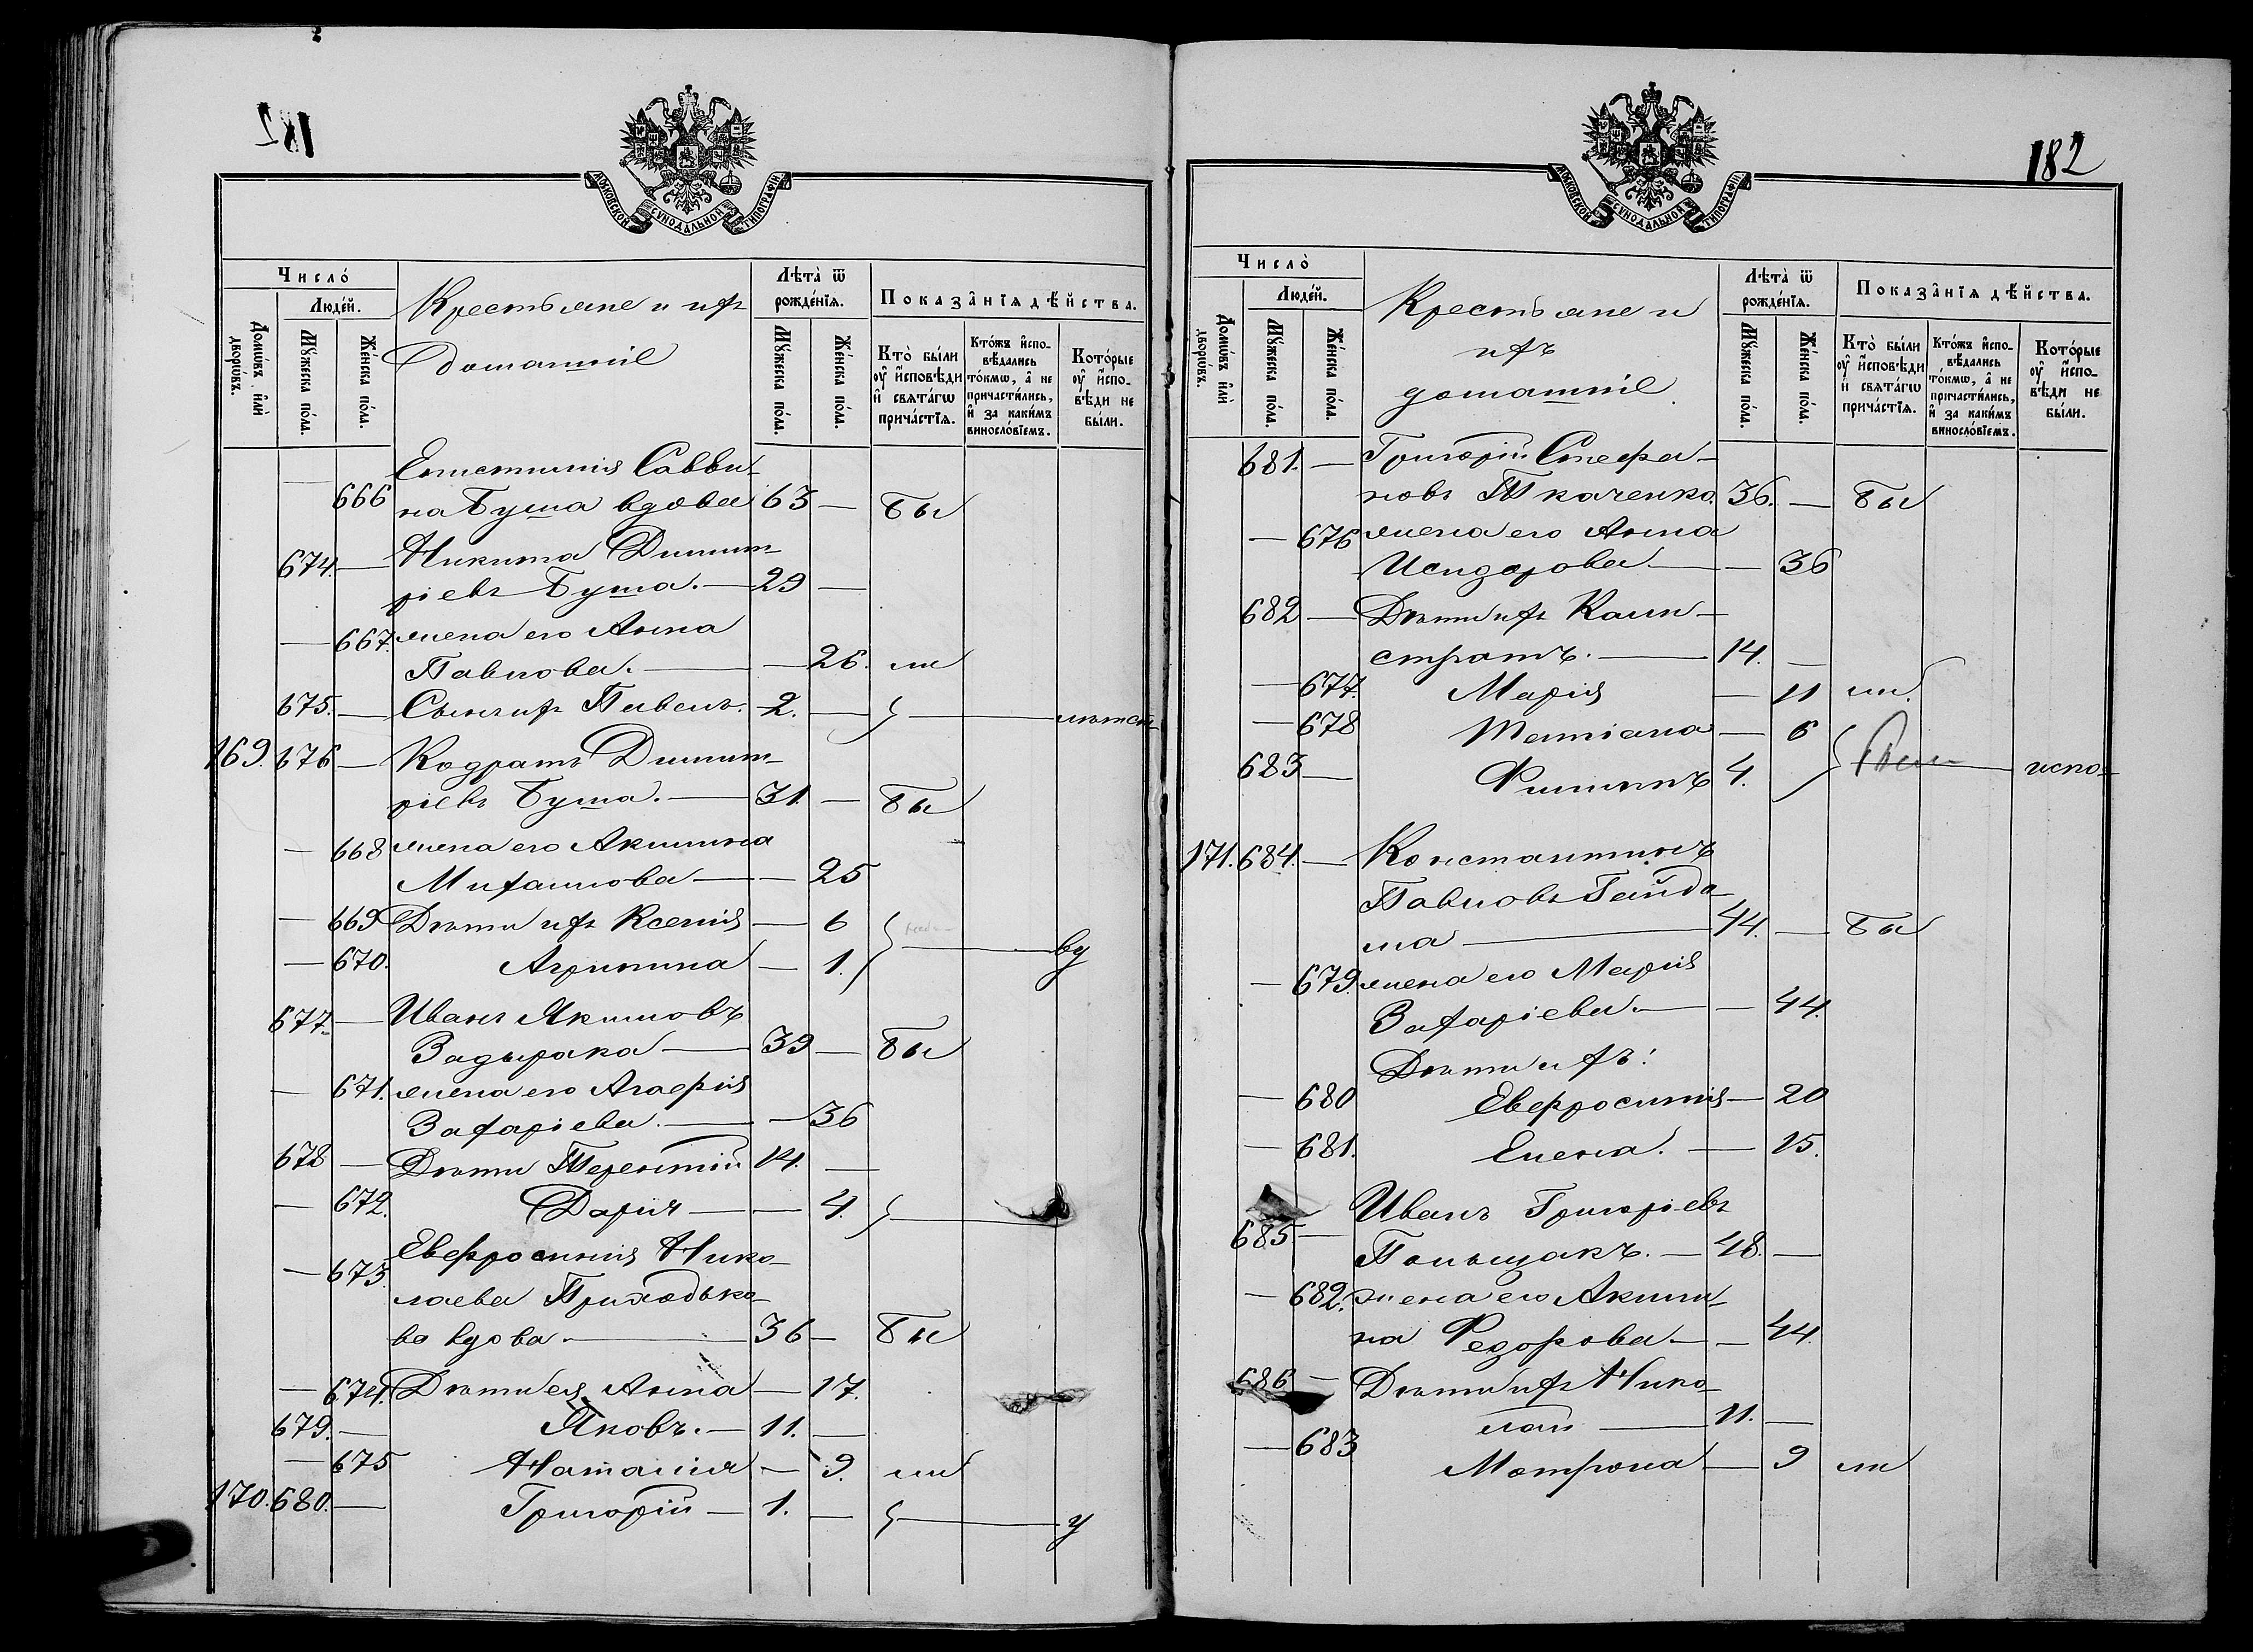 182
МОСКОВСКОЙ СѴНОДАЛЬНОЙ ТИПОГРАФІИ
Число́
Люде́й.
Домѡ́въ и҆лѝ дворѡ́въ.
Мꙋ́жеска по́ла.
Же́нска по́ла.
Крестьяне и ихъ
домашніе
Лѣта̀ ѿ рожде́нїѧ.
Мꙋ́жеска по́ла.
Же́нска по́ла.
Показа̂нїѧ дѣ́йства.
Кто̀ бы́ли оу҆ и҆спо́вѣди и҆ свѧта́гѡ прича́стїѧ.
Кто́жъ и҆спо-вѣ́дались то́кмѡ, а҆ не причасти́лись, и҆ за каки́мъ виносло́вїемъ.
Кото́рые оу҆ и҆спо-вѣди не бы́ли.
Епистимія Савви-
666 на Буша вдова 63 — бы
674. — Никита Димит-
ріевъ Буша. — 29 —
— 667. жена его Анна
Павлова. — — 26. ли
675. — Сынъ ихъ Павелъ. 2. —
169. 676 — Кодратъ Димит-
ріевъ Буша. — 31. — бы
— 668 жена его Акилина
Михаилова — — 25
— 669 Дѣти ихъ Ксенія — 6
— 670. Агрипина — 1. ву
677. — Иванъ Якимовъ
Задырака — 39 — бы
— 671. жена его Агафія
Захаріева. — — 36
678 — Дѣти Терентій 14. —
— 672. Дарія — — 4.
Евфросинія Нико-
— 673. лаева Приходько-
ва вдова. — 36 — бы
— 674. Дѣти ея Анна — 17.
679. — Яковъ. — 11. —
— 675 Наталія — 9. ли
170. 680. — Григорій — 1. — у
182
МОСКОВСКОЙ СѴНОДАЛЬНОЙ ТИПОГРАФІИ
Число̀
Люде́й.
Домѡ́въ и҆лѝ дворѡ́въ.
Мꙋ́жеска по́ла.
Же́нска по́ла.
Крестьяне и
ихъ
домашніе.
Лѣта̀ ѿ рожде́нїѧ.
Мꙋ́жеска по́ла.
Же́нска по́ла.
Показа̂нїѧ дѣ́йства.
Кто̀ бы́ли оу҆ и҆спо́вѣди и҆ свѧта́гѡ прича́стїѧ.
Кто́жъ и҆спо-вѣ́дались то́кмѡ, а҆ не причасти́лись, и҆ за каки́мъ виносло́вїемъ.
Кото́рые оу҆ и҆спо-вѣди не бы́ли.
681. — Григорій Стефа-
новъ Ткаченко. 36. — бы
— 676 жена его Анна
Исидорова — — 36
682 — Дѣти ихъ Кали-
стратъ. — 14. —
— 677. Марія — 11 ли.
— 678 Татіана — 6
683 — Филиппъ 4. испо-
171. 684. — Константинъ
Павловъ Гайда-
ма — 44. — бы
— 679. жена его Марія
Захаріева. — — 44.
Дѣти ихъ:
— 680 Евфросинія — 20
— 681. Елена. — 15.
Иванъ Григоріевъ
685 — Польщакъ. — 48. —
— 682. жена его Акили-
на Федорова — — 44.
686 — Дѣти ихъ Нико-
лай — 11. —
— 683 Матрона — 9 ли